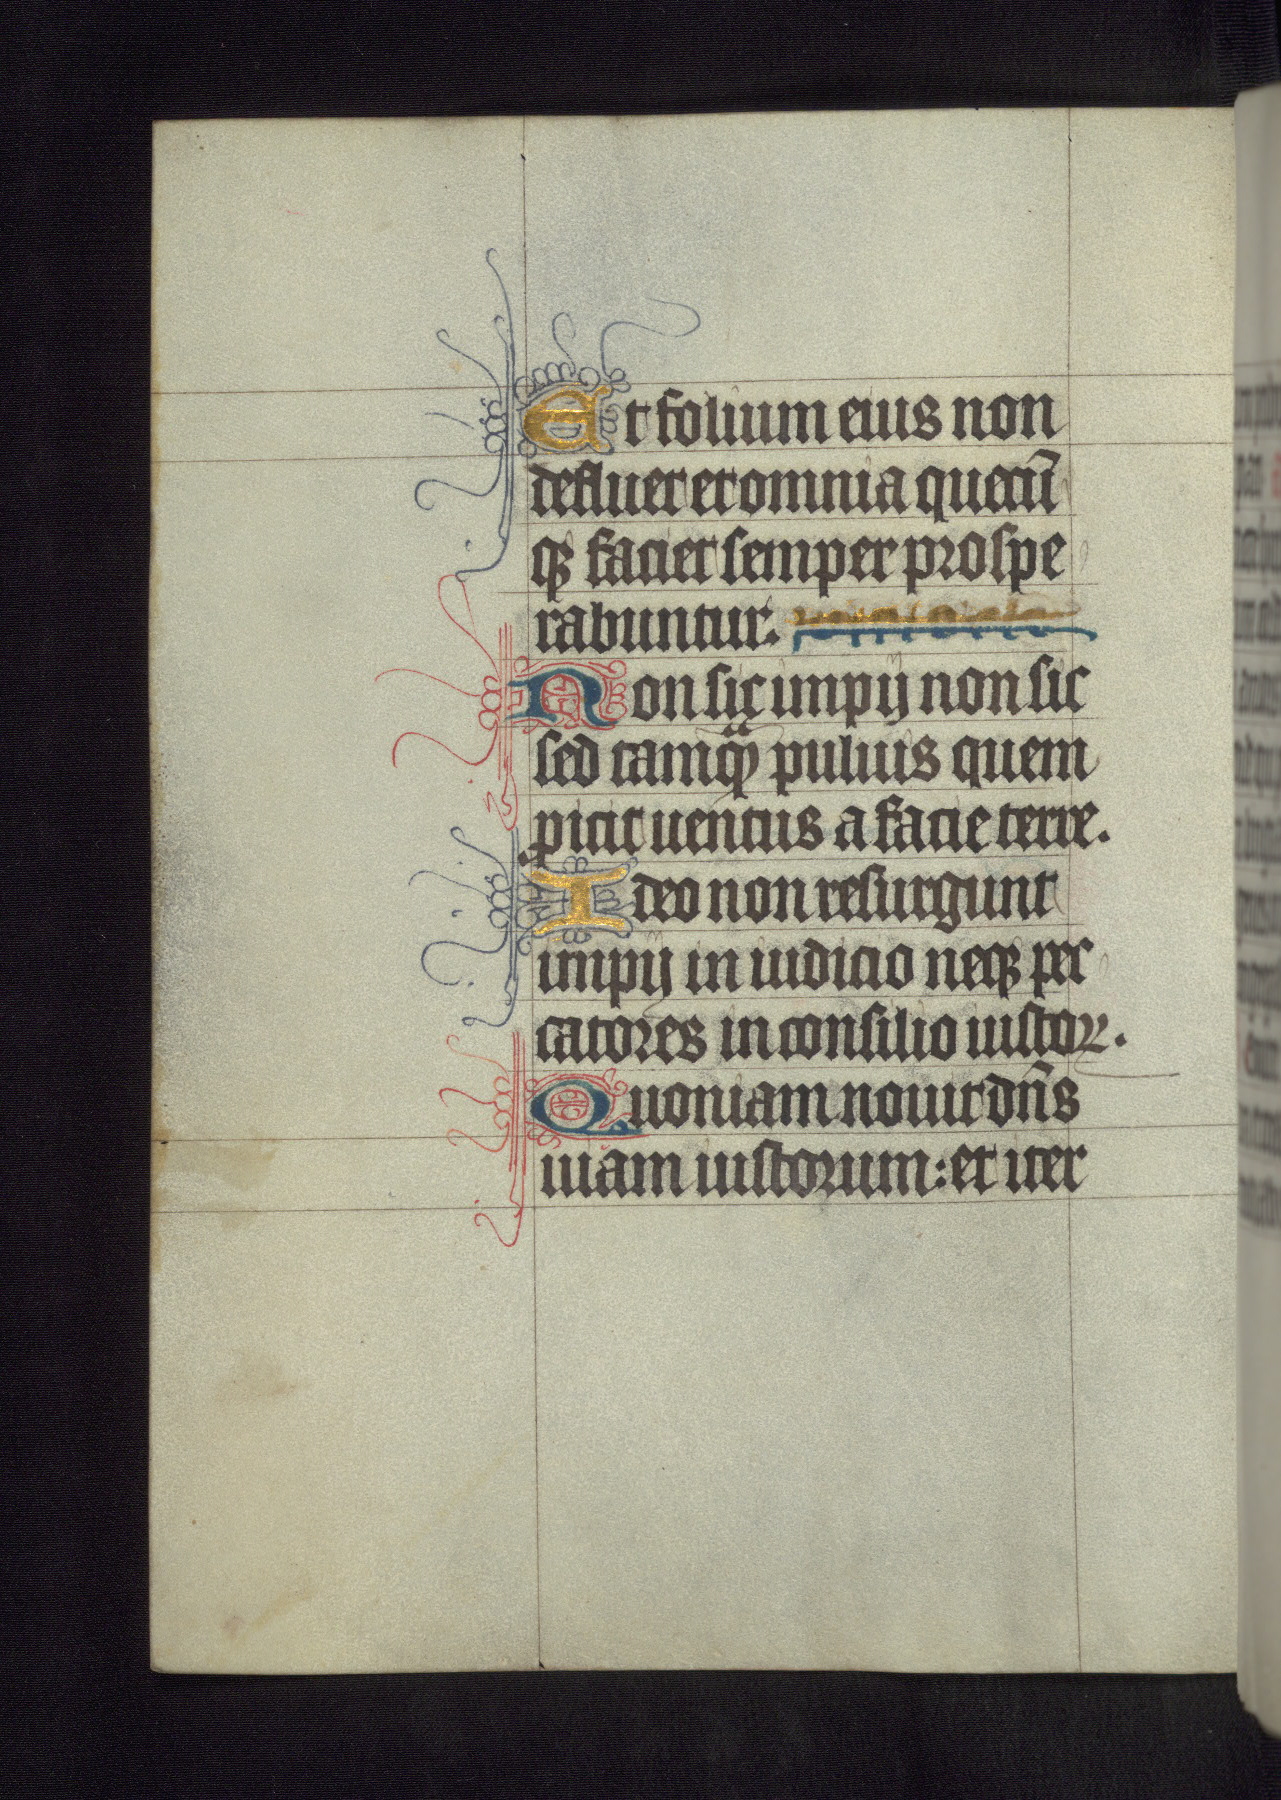 Et folium eius non
defluet et omnia quecū
qꝫ faciet semper prospe
rabuntur.
Non sic impij non sic
sed tamqͣꝫ puluis quem
picit uentus a facie terre.
Ideo non resurgunt
impij in iudicio neqꝫ pec
catores in consilio iustoꝝ.
Quoniam nouit dn̄s
uiam iustorum: et iter